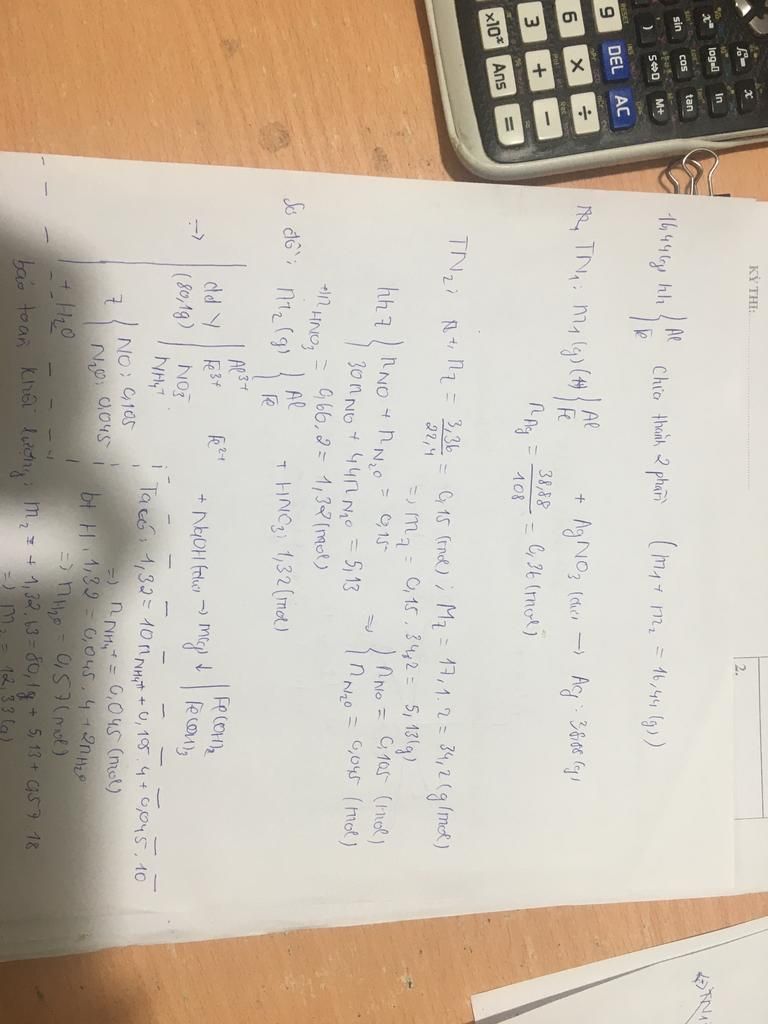 KỲ THI:
2.
16,44(g) hh { Al Fe chia thành 2 phần (m1 + m2 = 16,44 (g))
TN1: m1(g) { Al Fe + AgNO3 (dư) → Ag: 38,88 (g)
nAg = 38,88/108 = 0,36 (mol)
TN2: nZ = 3,36/22,4 = 0,15 (mol); MZ = 17,1.2 = 34,2 (g/mol)
=> mZ = 0,15.34,2 = 5,13(g)
hhZ { nNO + nN2O = 0,15
30nNO + 44nN2O = 5,13
=> { nNO = 0,105 (mol)
nN2O = 0,045 (mol)
+) nHNO3 = 0,66.2 = 1,32 (mol)
Sơ đồ: m2 (g) { Al Fe + HNO3: 1,32 (mol)
→ dd Y (80,1g) Al3+ Fe3+ Fe2+ NH4+ NO3- + NaOH (dư) → m(g) ↓ Fe(OH)2 Fe(OH)3
Z { NO: 0,105
N2O: 0,045
+ H2O
Ta có: 1,32 = 10nNH4+ + 0,105.4 + 0,045.10
=> nNH4+ = 0,045 (mol)
bt H: 1,32 = 0,045.4 + 2nH2O
=> nH2O = 0,57 (mol)
bảo toàn khối lượng: m2 + 1,32.63 = 80,1 + 5,13 + 0,57.18
=> m2 = 12,33(g)
TN1
sin
cos
tan
ln
S⇔D
M+
9
DEL
AC
6
×
÷
3
+
−
×10x
Ans
=